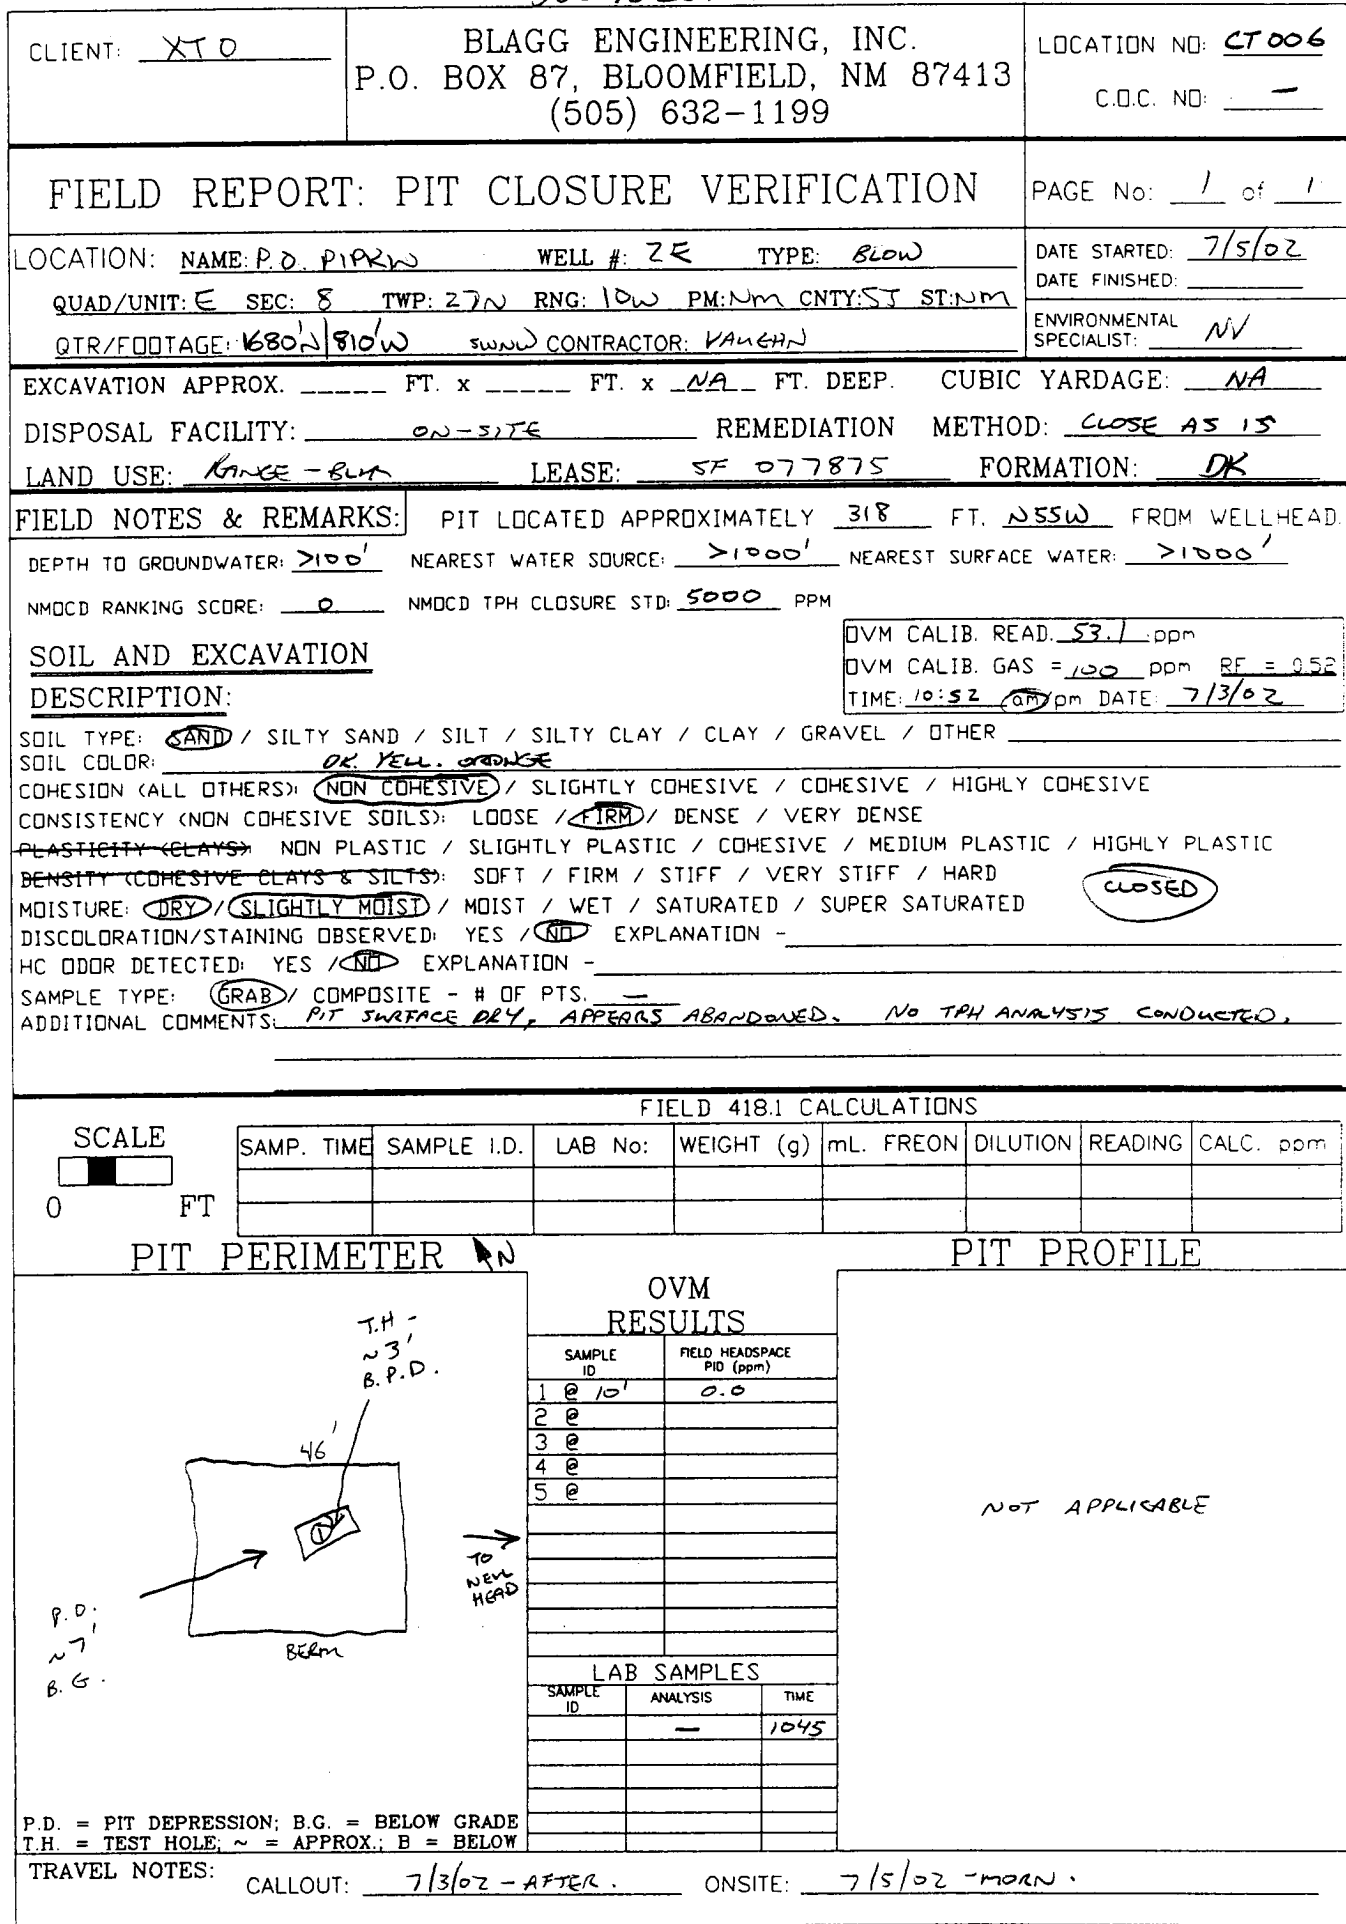 CLIENT: XTO
BLAGG ENGINEERING, INC.
P.O. BOX 87, BLOOMFIELD, NM 87413
(505) 632-1199
LOCATION NO: CT006
C.O.C. NO: —
FIELD REPORT: PIT CLOSURE VERIFICATION
PAGE No: 1 of 1
LOCATION: NAME: P.O. PIPKIN WELL #: 2E TYPE: BLOW
QUAD/UNIT: E SEC: 8 TWP: 27N RNG: 10W PM: NM CNTY: SJ ST: NM
QTR/FOOTAGE: 1680'N/810'W SWNW CONTRACTOR: VAUGHN
DATE STARTED: 7/5/02
DATE FINISHED:
ENVIRONMENTAL SPECIALIST: NV
EXCAVATION APPROX. FT. x FT. x NA FT. DEEP. CUBIC YARDAGE: NA
DISPOSAL FACILITY: ON-SITE REMEDIATION METHOD: CLOSE AS IS
LAND USE: RANGE - BLM LEASE: SF 077875 FORMATION: DK
FIELD NOTES & REMARKS: PIT LOCATED APPROXIMATELY 318 FT. N55W FROM WELLHEAD.
DEPTH TO GROUNDWATER: >100' NEAREST WATER SOURCE: >1000' NEAREST SURFACE WATER: >1000'
NMOCD RANKING SCORE: 0 NMOCD TPH CLOSURE STD: 5000 PPM
SOIL AND EXCAVATION
DESCRIPTION:
OVM CALIB. READ. 53.1 ppm
OVM CALIB. GAS = 100 ppm RF = 0.52
TIME: 10:52 am/pm DATE: 7/3/02
SOIL TYPE: SAND / SILTY SAND / SILT / SILTY CLAY / CLAY / GRAVEL / OTHER
SOIL COLOR: DK. YELL. ORANGE
COHESION (ALL OTHERS): NON COHESIVE / SLIGHTLY COHESIVE / COHESIVE / HIGHLY COHESIVE
CONSISTENCY (NON COHESIVE SOILS): LOOSE / FIRM / DENSE / VERY DENSE
PLASTICITY (CLAYS): NON PLASTIC / SLIGHTLY PLASTIC / COHESIVE / MEDIUM PLASTIC / HIGHLY PLASTIC
DENSITY (COHESIVE CLAYS & SILTS): SOFT / FIRM / STIFF / VERY STIFF / HARD
CLOSED
MOISTURE: DRY / SLIGHTLY MOIST / MOIST / WET / SATURATED / SUPER SATURATED
DISCOLORATION/STAINING OBSERVED: YES / NO EXPLANATION -
HC ODOR DETECTED: YES / NO EXPLANATION -
SAMPLE TYPE: GRAB / COMPOSITE - # OF PTS. —
ADDITIONAL COMMENTS: PIT SURFACE DRY, APPEARS ABANDONED. NO TPH ANALYSIS CONDUCTED.
FIELD 418.1 CALCULATIONS
SCALE
0 FT
SAMP. TIME SAMPLE I.D. LAB No: WEIGHT (g) mL. FREON DILUTION READING CALC. ppm
PIT PERIMETER N
PIT PROFILE
T.H -
~3'
B.P.D.
46'
1
P.D.
~7'
B.G.
BERM
TO
WELL
HEAD
OVM
RESULTS
SAMPLE ID FIELD HEADSPACE PID (ppm)
1 @ 10' 0.0
2 @
3 @
4 @
5 @
LAB SAMPLES
SAMPLE ID ANALYSIS TIME
— 1045
NOT APPLICABLE
P.D. = PIT DEPRESSION; B.G. = BELOW GRADE
T.H. = TEST HOLE; ~ = APPROX.; B = BELOW
TRAVEL NOTES: CALLOUT: 7/3/02 - AFTER. ONSITE: 7/5/02 - MORN.